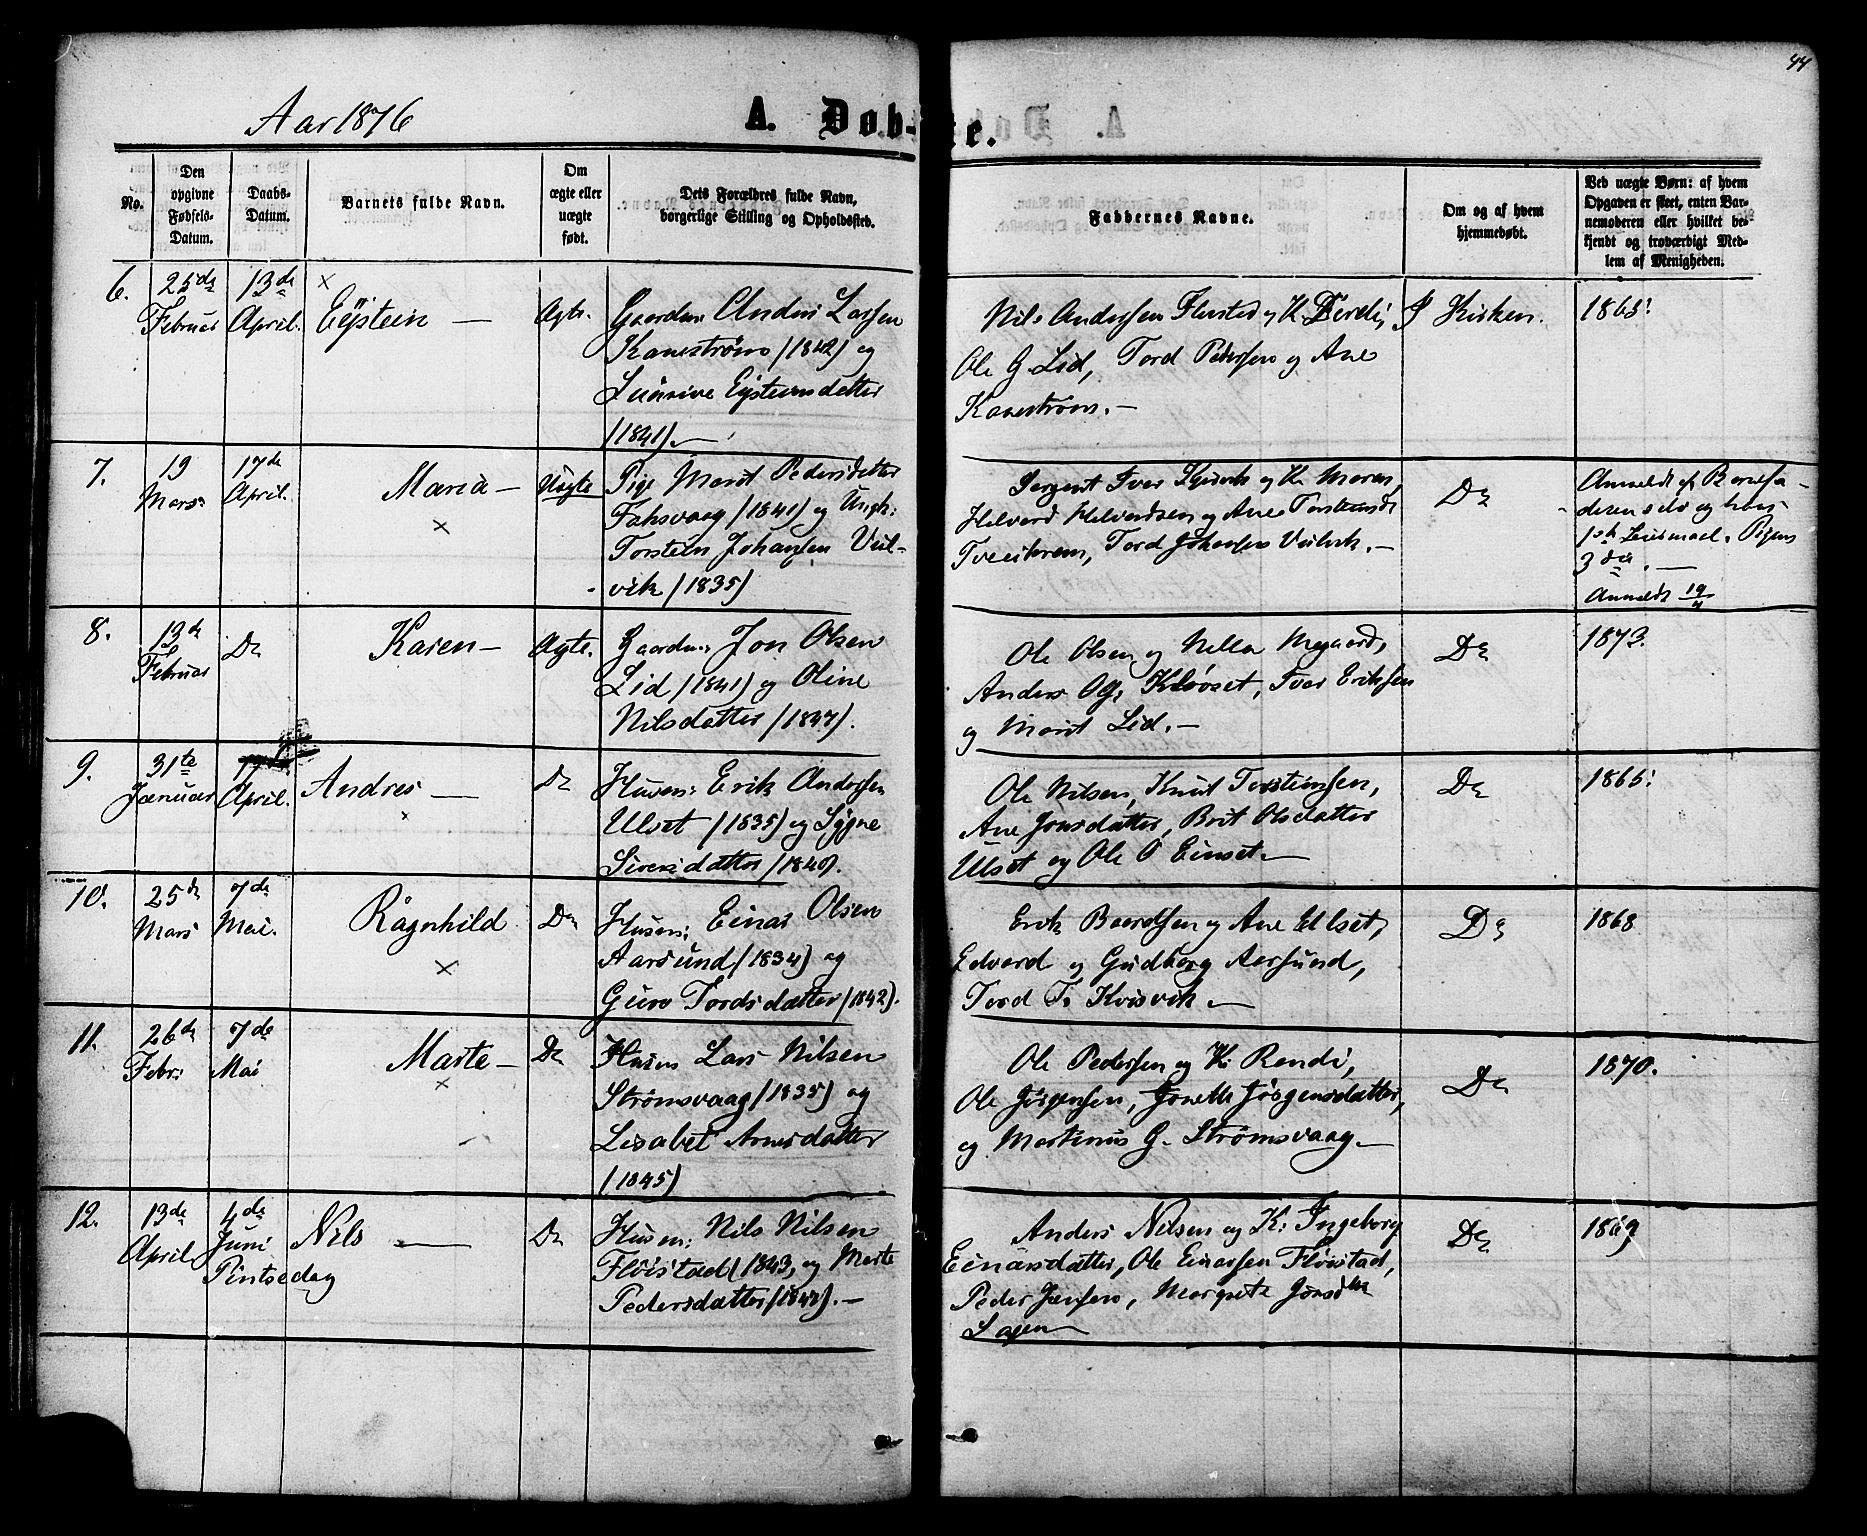 44
Aar 1876
A. Døb-
te.
No.
Den opgivne Fødsels-Datum.
Daabs-Datum.
Barnets fulde Navn.
Om ægte eller uægte født.
Dets Forældres fulde Navn, borgerlige Stilling og Opholdssted.
Faddernes Navne.
Om og af hvem hjemmedøbt.
Ved uægte Børn: af hvem Opgaven er skeet, enten Barnemoderen eller hvilket bekjendt og troværdigt Medlem af Menigheden.
6.
25de Februar
13de April.
Eystein —
Ægte.
Gaardm. Anders Larsen
Kanestrøm (1842) og
Eysteinsdatter
(1841).—
Nils Andersen og K.
Ole G. Lid, Tord Pedersen og Ane
Kanestrøm.—
I Kirken.
1865.
7.
19 Mars
17de April.
Maria —
Uægte
Pige Marit Pedersdatter
(1841) og Ungk.
Torstein Johansen Vul-
vik (1835)
Sergent Iver og K. Maren,
Helvard Helvardsen og Ane
Tveekrem, Tord Johansen —
Do
Anmeldt af Barnefa-
deren selv og hans
1ste Leiermaal. Pigens
3die.—
Anmeldt 19/4
8.
13de Februar
Do
Karen —
Ægte.
Gaardm. Jon Olsen
Lid (1841) og Oline
Nilsdatter (1837).
Ole Olsen og Nella Megaard,
Anders Ols. Kløset, Iver Eriksen
og Marit Lid.—
Do
1873.
9.
31te Januar
17 April.
Andres —
Do
Husm: Erik Andersen
Ulset (1835) og Sygne
Siversdatter (1840).
Ole Nilsen, Knut Torsteinsen,
Ane Jonsdatter, Brit Olsdatter
Ulset og Ole O Einset.—
Do
1865.
10.
25de Mars
7de Mai.
Ragnhild
Do
Husm: Einar Olsen
Aarsund (1834) og
Guro Tordsdatter (1842).
Erik Baardsen og Ane Ulset,
Edvard og Gudborg Aarsund,
Tord T. Kvisvik.—
Do
1868
11.
26de Febr:
7de Mai
Marte —
Do
Husm Lars Nilsen
Strømsvaag (1835) og
Lisabet Arnesdatter
(1845)
Ole Pedersen og K: Randi,
Ole Jørgensen, Jonette Jørgensdatter,
og Martinus G. Strømsvaag.—
Do
1870.
12.
13de April
4de Juni
Pintsedag
Nils —
Do
Husm: Nils Nilsen
Fløistad (1843, og Marte
Pedersdatter (1843).—
Anders Nilsen og K: Ingeborg
Einarsdatter, Ole Einarsen Fløistad,
Peder Jensen, Margrete Jonsdtr
Lagen—
Do
1869